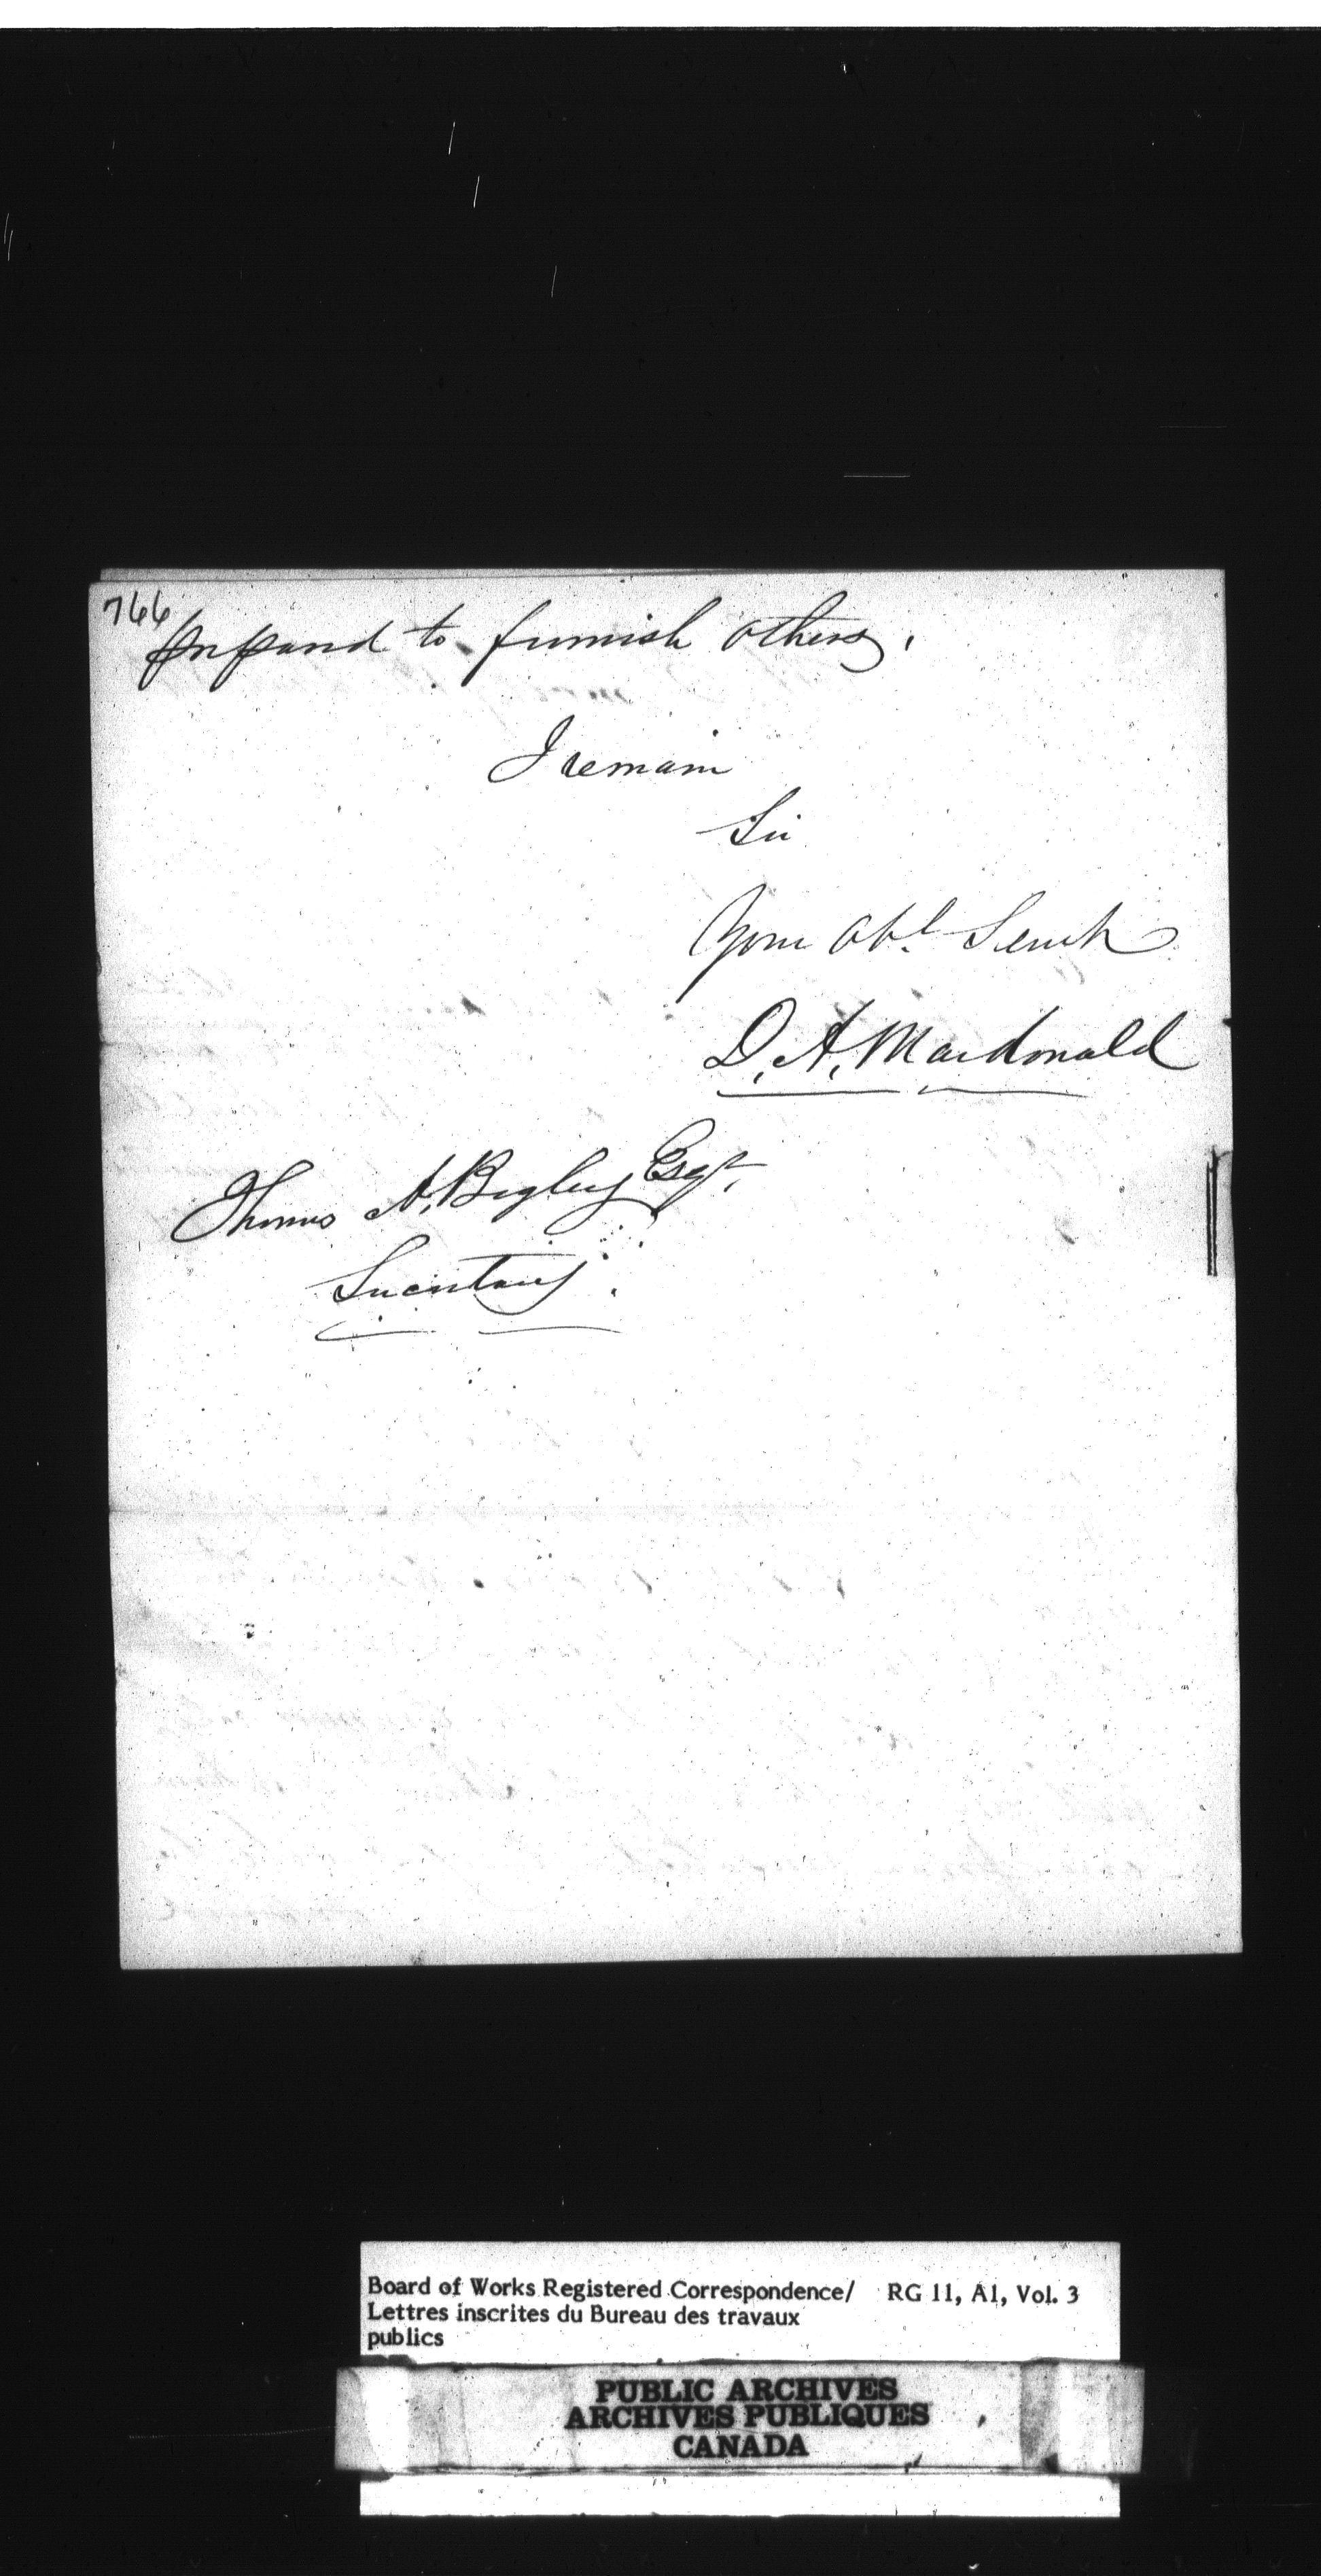 766
prepared to furnish others.
I remain
Sir
Your Obt. Servt
D. A. Macdonald
Thomas A. Begley Esqr.
Secretary.
Board of Works Registered Correspondence/ RG 11, A1, Vol. 3
Lettres inscrites du Bureau des travaux
publics
PUBLIC ARCHIVES
ARCHIVES PUBLIQUES
CANADA